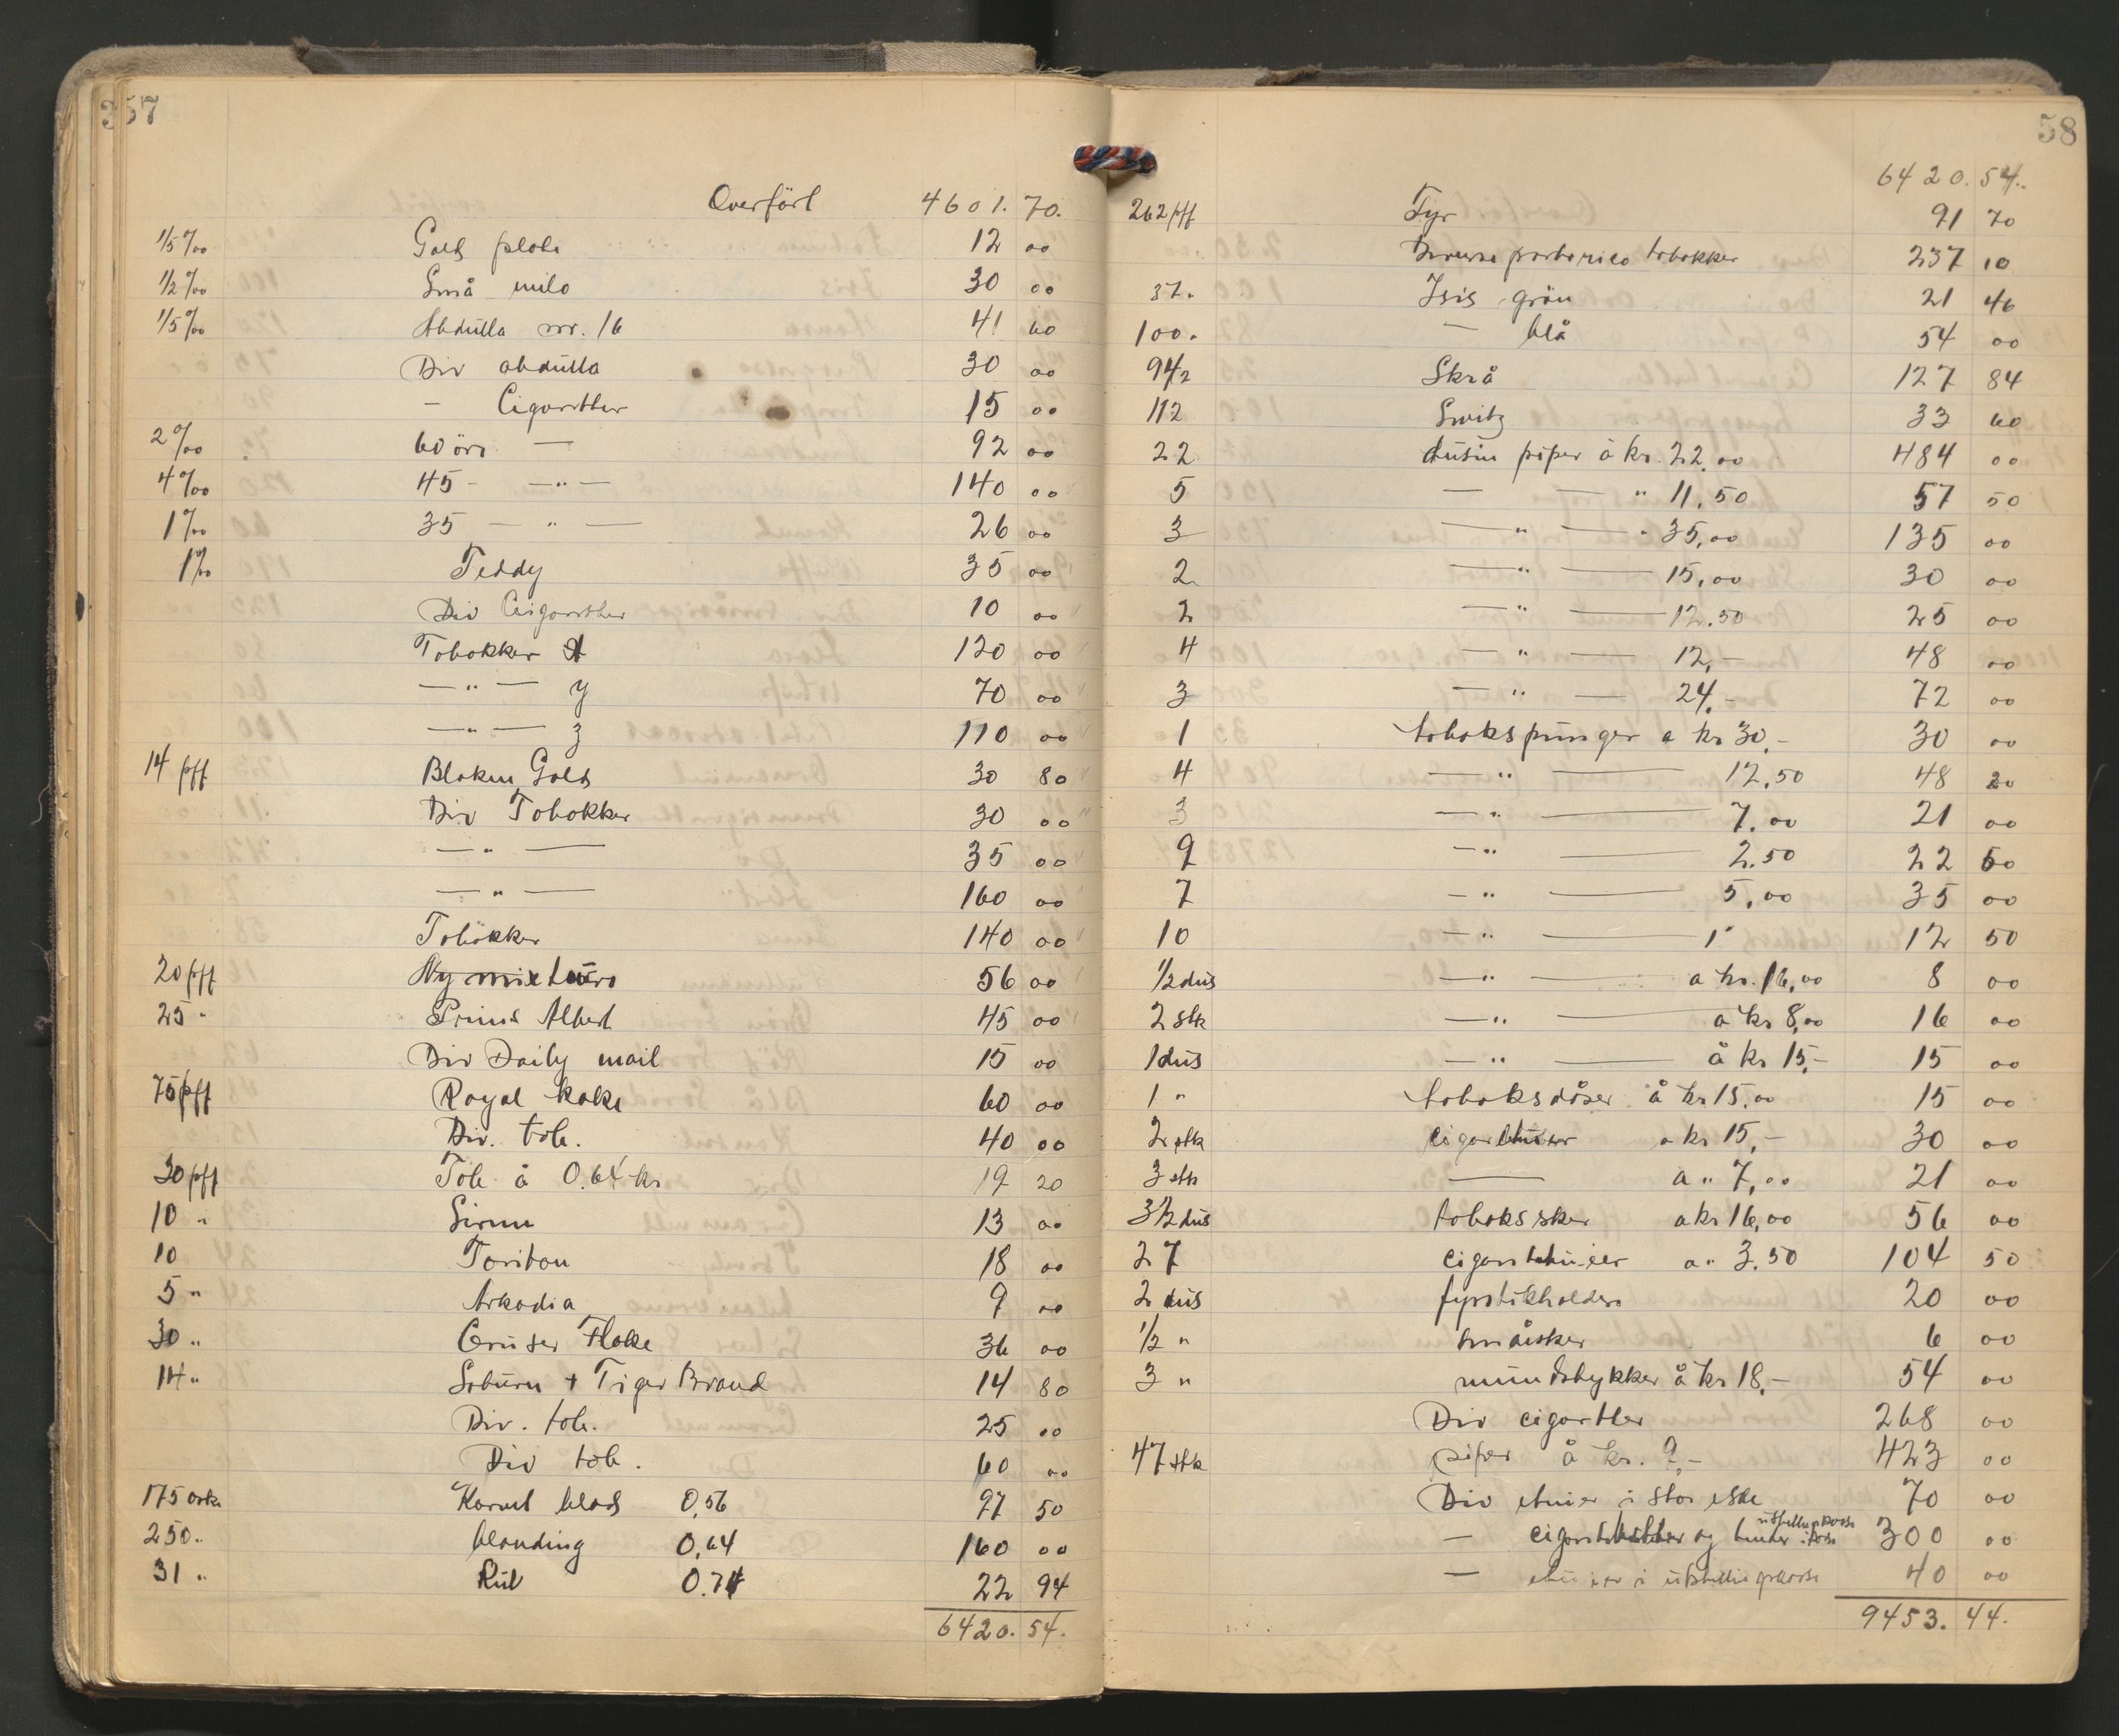 357
Overført 4601. 70.
1/5 ‰ Gold plate 12 00
1/2 ‰ Små milo 30 00
1/5 ‰ Abdulla nr. 16 41 60
Div abdulla 30 00
— Cigaretter 15 00
2 ‰ 60 öre — 92 00
4 ‰ 45 - —"— 140 00
1 ‰ 35 — " — 26 00
1 ‰ Teddy 35 00
Div Ceigaretter 10 00
Tobakker 120 00
—"— y 70 00
—"— z 110 00
14 pff Blaken Gold 30 80
Div Tobakker 30 00
—"— 35 00
—"— 160 00
Tobakker 140 00
20 pff Ny mixture 56 00
25 " Prins Albert 45 00
Div Daily mail 15 00
75 pff Royal kake 60 00
Div. tob. 40 00
30 pff Tob. à 0.64 kr 19 20
10 " 13 00
10 Toriton 18 00
5 " Arkadia 9 00
30 " Cruser Flake 36 00
14 " + Tiger Brand 14 80
Div. tob. 25 00
Div tob. 60 00
175 Karvet blad 0,56 97 50
250 " blanding 0,64 160 00
31 " Rul 0.74 22 94
6420. 54.
58
6420. 54.
262 pff Fyr 91 70
Diverse portorico tobakker 237 10
37. Isis grön 21 46
100. — blå 54 00
94 1/2 Skrå 127 84
112 Switz 33 60
22 dusin piper à kr. 22.00 484 00
5 — — " 11.50 57 50
3 —"— " 35,00 135 00
2 —"— 15,00 30 00
2 —"— 12.50 25 00
4 —"— 12,- 48 00
3 —"— 24,- 72 00
1 tobakspunger a kr 30,- 30 00
4 —"— 12,50 48 20
3 —"— 7.00 21 00
9 —"— 2.50 22 50
7 —"— 5,00 35 00
10 —"— 1" 12 50
1/2 dus —"— a kr. 16,00 8 00
2 stk —"— a kr 8,00 16 00
1 dus —"— å kr 15,- 15 00
1 " tobaksdåser å kr 15.00 15 00
2 stk a kr 15,- 30 00
3 stk — a " 7,00 21 00
3 1/2 dus tobaks sker a kr 16,00 56 00
27 cigarettetuier a " 3.50 104 50
2 dus fyrstikholdere 20 00
1/2 " småsker 6 00
3 " mundstykker å kr 18,- 54 00
Div cigaretter 268 00
47 stk piper å kr. 9,- 423 00
Div etuier i stor eske 70 00
— og 300 00
— etuier i 40 00
9453. 44.